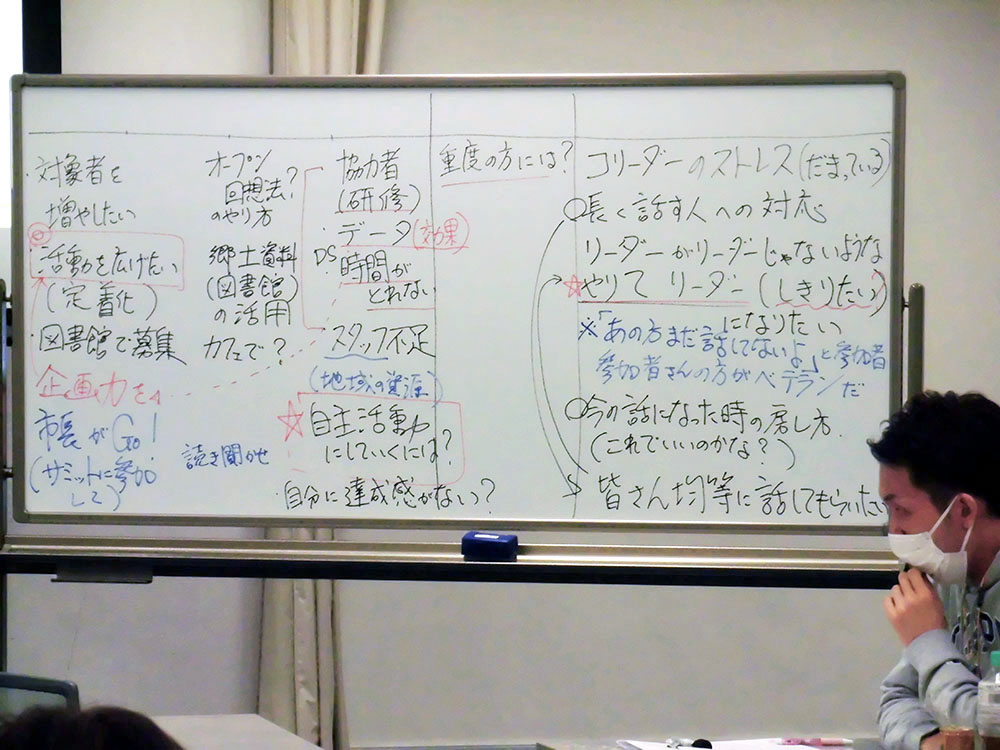 ・対象者を
増やしたい
◎
・活動を広げたい
(定着化)
・図書館で募集
企画力を
市長がGo!
(サミットに参加
して)
オープン
回想法?
のやり方
郷土資料
(図書館)
の活用
カフェで?
読き聞かせ
協力者
(研修)
・データ(効果)
DS
・時間が
とれない
・スタッフ不足
(地域の資源)
☆自主活動
にしていくには?
・自分に達成感がない?
重度の方には?
コリーダーのストレス(だまっている)
○長く話す人への対応
リーダーがリーダーじゃないような
☆やりて リーダー(しきりたい)
になりたい
※「あの方まだ話してないよ」と参加者
参加者さんの方がベテランだ
○今の話になった時の戻し方.
(これでいいのかな?)
皆さん均等に話してもらいたい